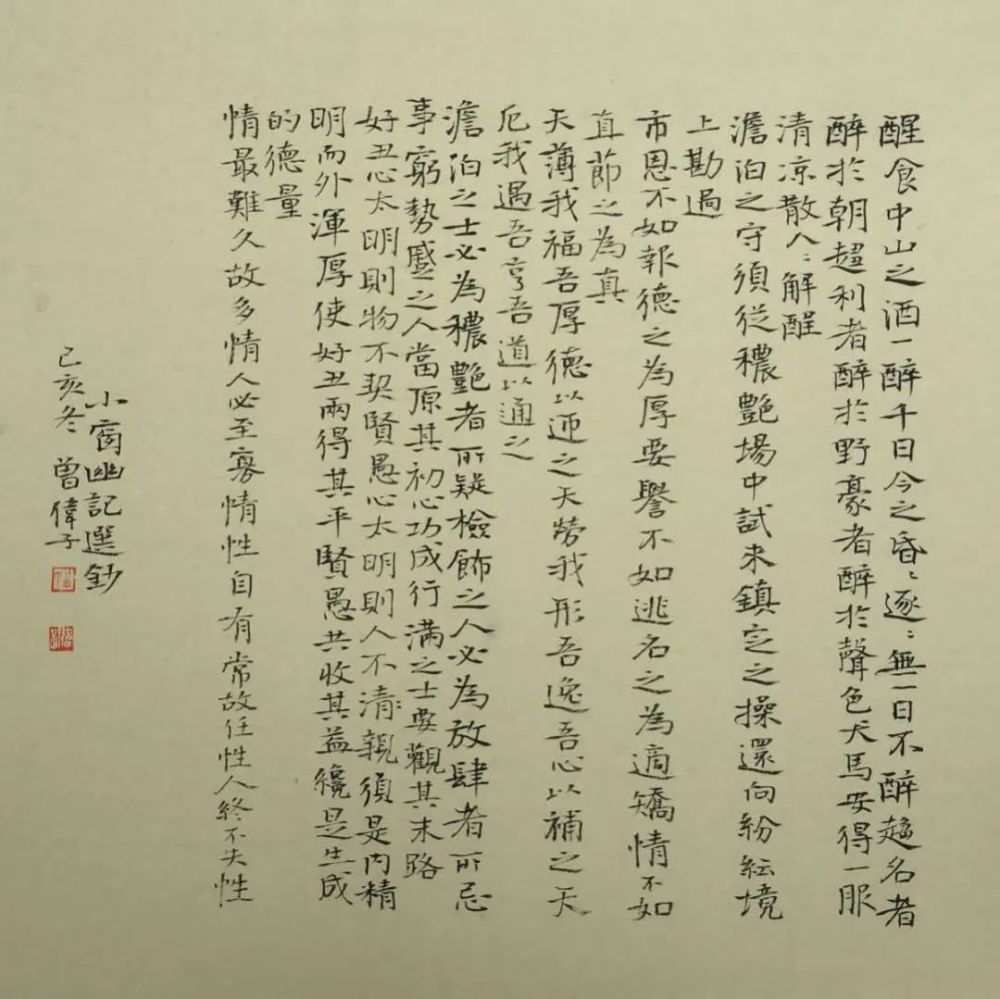 醒食中山之酒一醉千日今之昏〻逐〻無一日不醉趨名者
醉於朝趨利者醉於野豪者醉於聲色犬馬安得一服
清凉散人〻解醒
澹泊之守須從穠艷場中試來鎮定之操還向紛紜境
上勘過
市恩不如報德之為厚要譽不如逃名之為適矯情不如
直節之為真
天薄我福吾厚德以迎之天勞我形吾逸吾心以補之天
厄我遇吾亨吾道以通之
澹泊之士必為穠艷者所疑檢飾之人必為放肆者所忌
事窮勢蹙之人當原其初心功成行滿之士要觀其末路
好丑心太明則物不契賢愚心太明則人不清親須是内精
明而外渾厚使好丑兩得其平賢愚共收其益纔是生成
的德量
情最難久故多情人必至寡情性自有常故任性人終不失性
小窗幽記選鈔
己亥冬 曾偉子